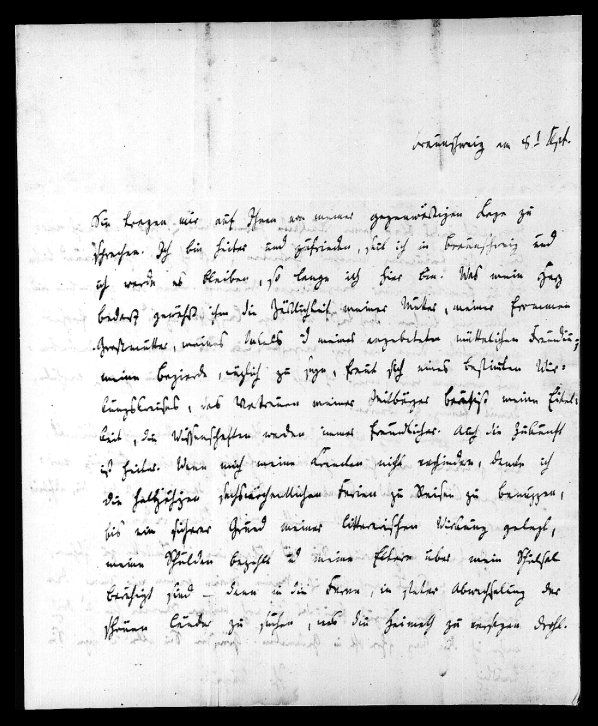 Braunschweig am 8t Sept.
Sie tragen mir auf Ihnen von meiner gegenwärtigen Lage zu
sprechen. Ich bin heiter und zufrieden, seit ich in Braunschweig und
ich werde es bleiben, so lange ich hier bin. Was mein Herz
bedarf gewährt ihm die Zärtlichkeit meiner Mutter, meiner frommen
Großmutter, meines Onkels u meiner angebeteten mütterlichen Freundin;
meine Begierde, nützlich zu seyn, freut sich eines bestimten Wir-
kungskreises, das Vertrauen meiner Mitbürger meine Eitel-
keit, die Wissenschaften werden immer freundlicher. Auch die Zukunft
ist heiter. Wenn mich meine Kranken nicht verhindern, denke ich
die halbjährigen sechswöchentlichen Ferien zu Reisen zu benuzzen,
bis ein sicherer Grund meiner litterarischen Wirkung gelegt,
meine Schulden bezahlt und meine Eltern über mein Schiksal
beruhigt sind — dann in die Ferne, in steter Abwechselung der
schönen Länder zu suchen, was die Heimath zu versagen droht.